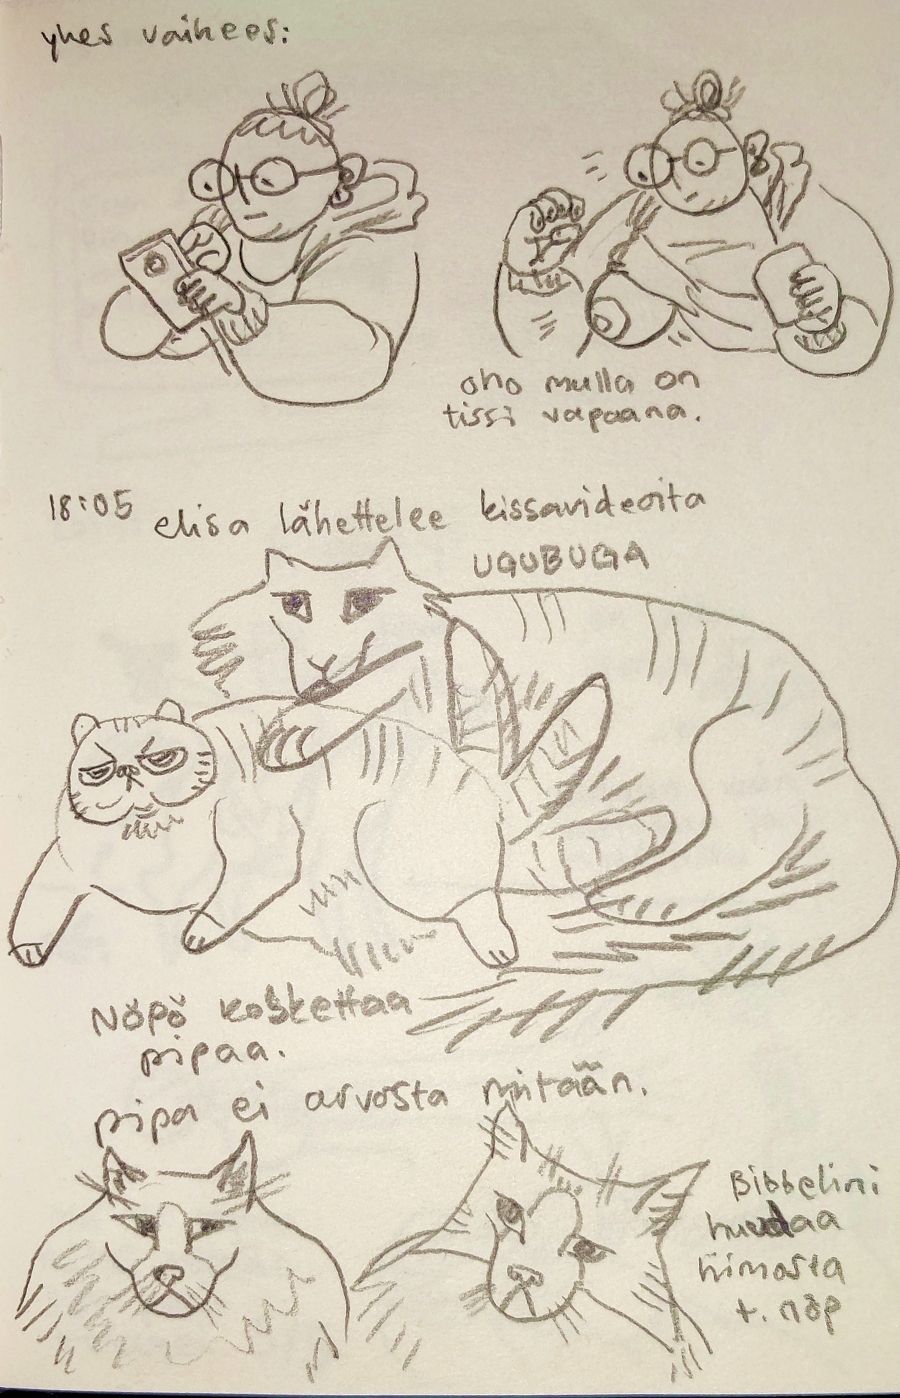 yhes vaihees:
oho mulla on
tissi vapaana.
18:05 elisa lähettelee kissavideoita
UGUBUGA
Nöpö koskettaa
pipaa.
pipa ei arvosta mitään.
Bibbelini
huudaa
himosta
t. nöp